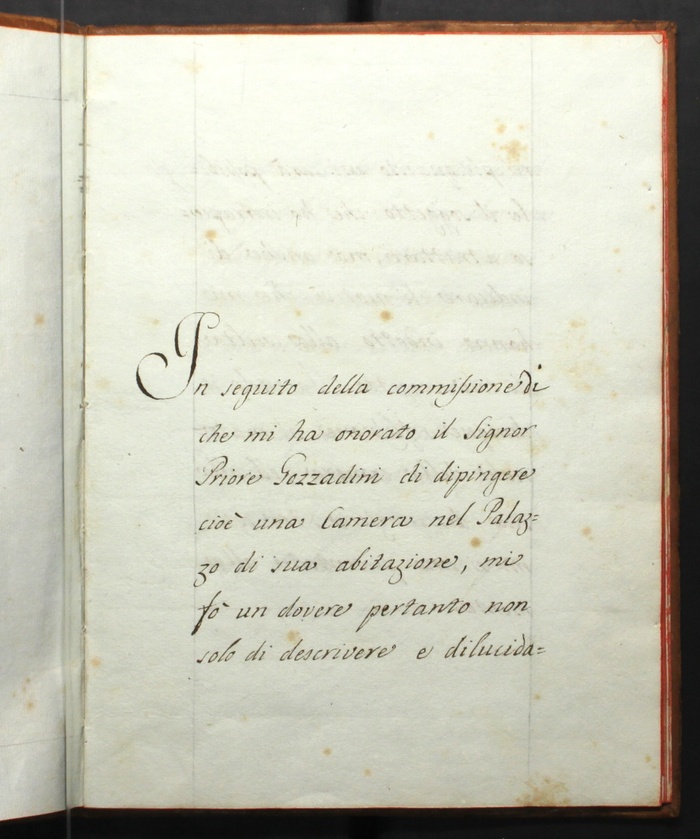 In seguito della commissione di
che mi ha onorato il Signor
Priore Gozzadini di dipingere
cioè una Camera nel Palaz=
zo di sua abitazione, mi
fò un dovere pertanto non
solo di descrivere e dilucida=